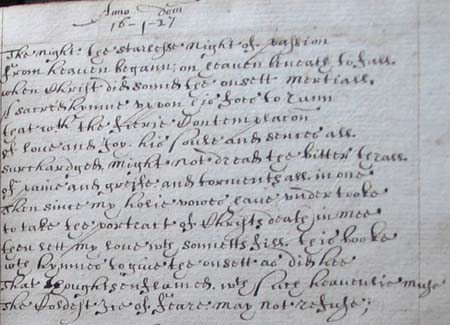 Anno dom
16-1-27
The night the starlesse night of passion
From heaven begann; on heaven beneath to fall.
when Christ did sound the onsett Mertiall.
A sacred hymne uppon his foes to runn
that wth the fierie Contemplacon
of love and Joy. his soule and sences all.
surchardged might not dread the bitter thrall.
of paine and greife and torments all in one
Then since my holie vowes have undertooke
to take the portract of Christs death in mee
then lett my love wth sonetts fill this booke
wth hymnes to give the onsett as did hee
That thoughts enflamed wth such heavenlie muse
The Coldest Ice of feare may not refuse;